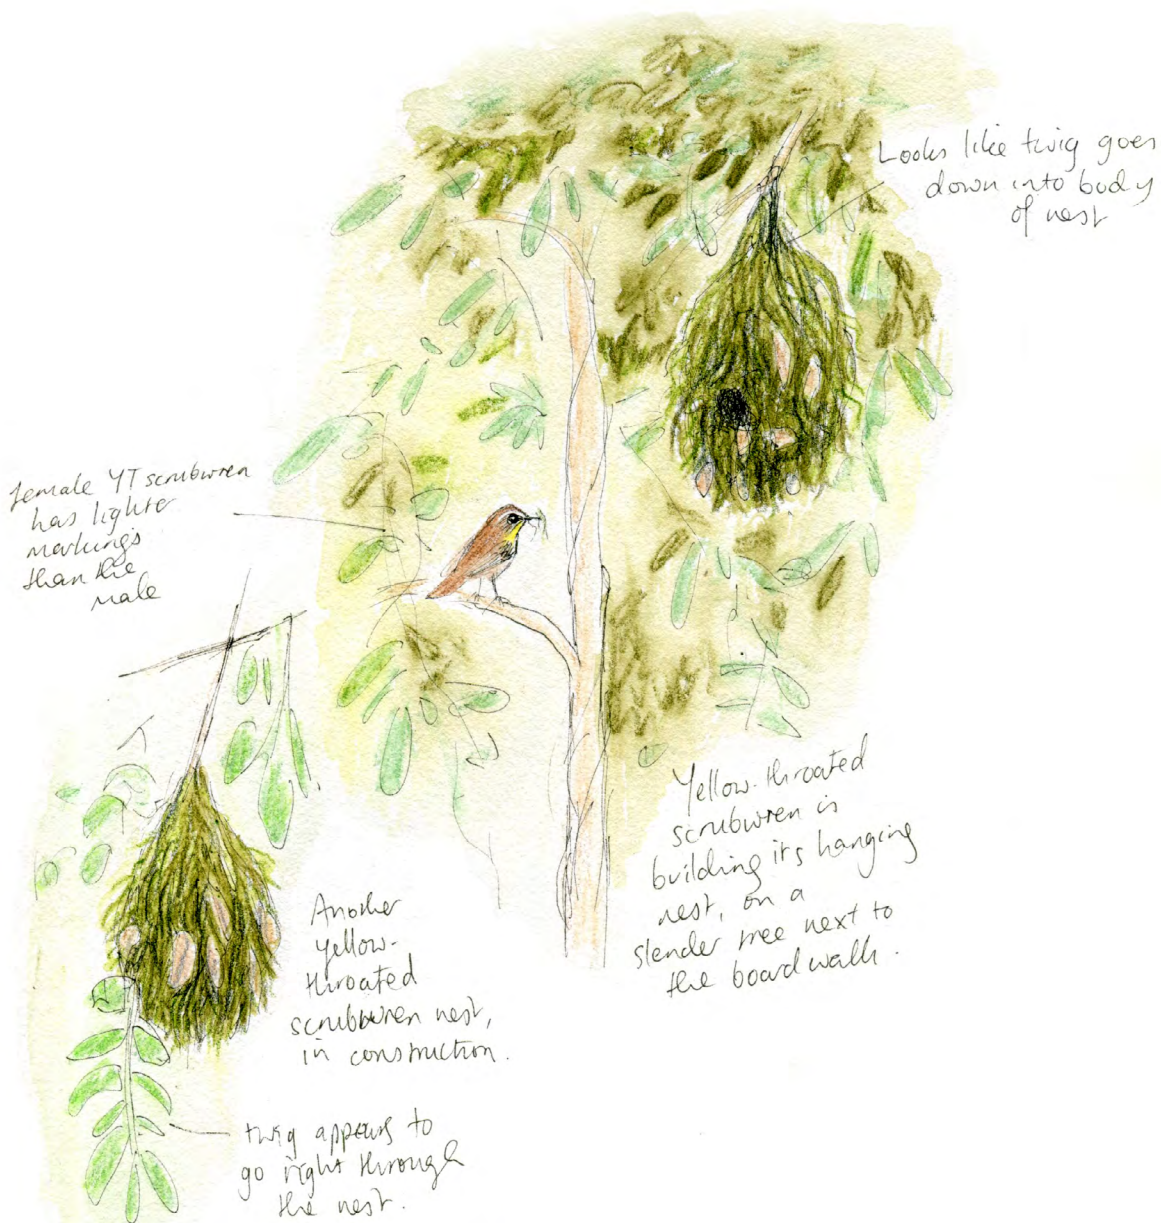 Looks like twig goes
down into body
of nest
female YT scrubwren
has lighter
markings
than the
male
Yellow-throated
scrubwren is
building its hanging
nest, on a
slender tree next to
the boardwalk.
Another
yellow-
throated
scrubwren nest,
in construction.
twig appears to
go right through
the nest.